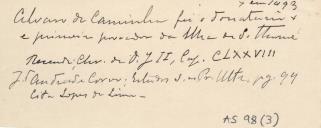 em 1493
Alvaro de Caminha foi o donatario
e primeiro povoador da Ilha de S. Thomé
Resende, Chr. de D. J. II, Cap. CLXXVIII
J. d'Andrade Corvo. Estudos s. as Prov. Ultr. pg. 94
Cita Lopes de Lima -
AS 98 (3)